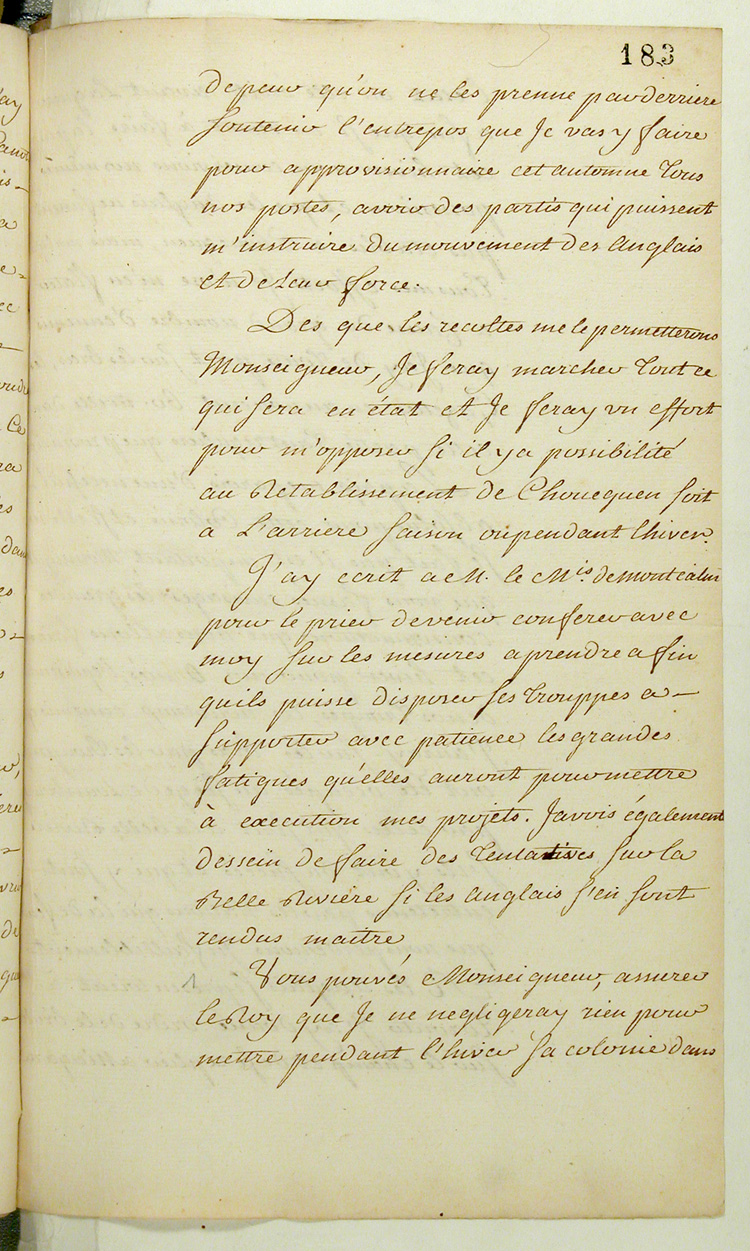 183
de peur qu'on ne les prenne par derriere
soutenir l'entrepos que Je vas y faire
pour approvisionnaire cet automne Tous
nos postes, avoir des partis qui puissent
m'instruire du mouvement des Anglais
et de Leur force.
Des que les recoltes me le permetterons
Monseigneur, Je feray marcher Tout ce
qui sera en état et Je feray un effort
pour m'opposer si il y a possibilité
au Retablissement de Choueguen soit
a L'arriere saison ou pendant l'hiver.
J'ay ecrit a M. le Mis. de montcalm
pour le prier de venir conferer avec
moy sur les mesures a prendre afin
quils puisse disposer ses Trouppes a
supporter avec patience les grandes
fatigues qu'elles auront pour mettre
à execution mes projets. J'avois également
dessein de faire des Tentatives sur la
Belle Riviere si les Anglais s'en sont
rendus maitre
Vous pouvés Monseigneur, assurer
le Roy que Je ne negligeray rien pour
mettre pendant l'hiver sa colonie dans